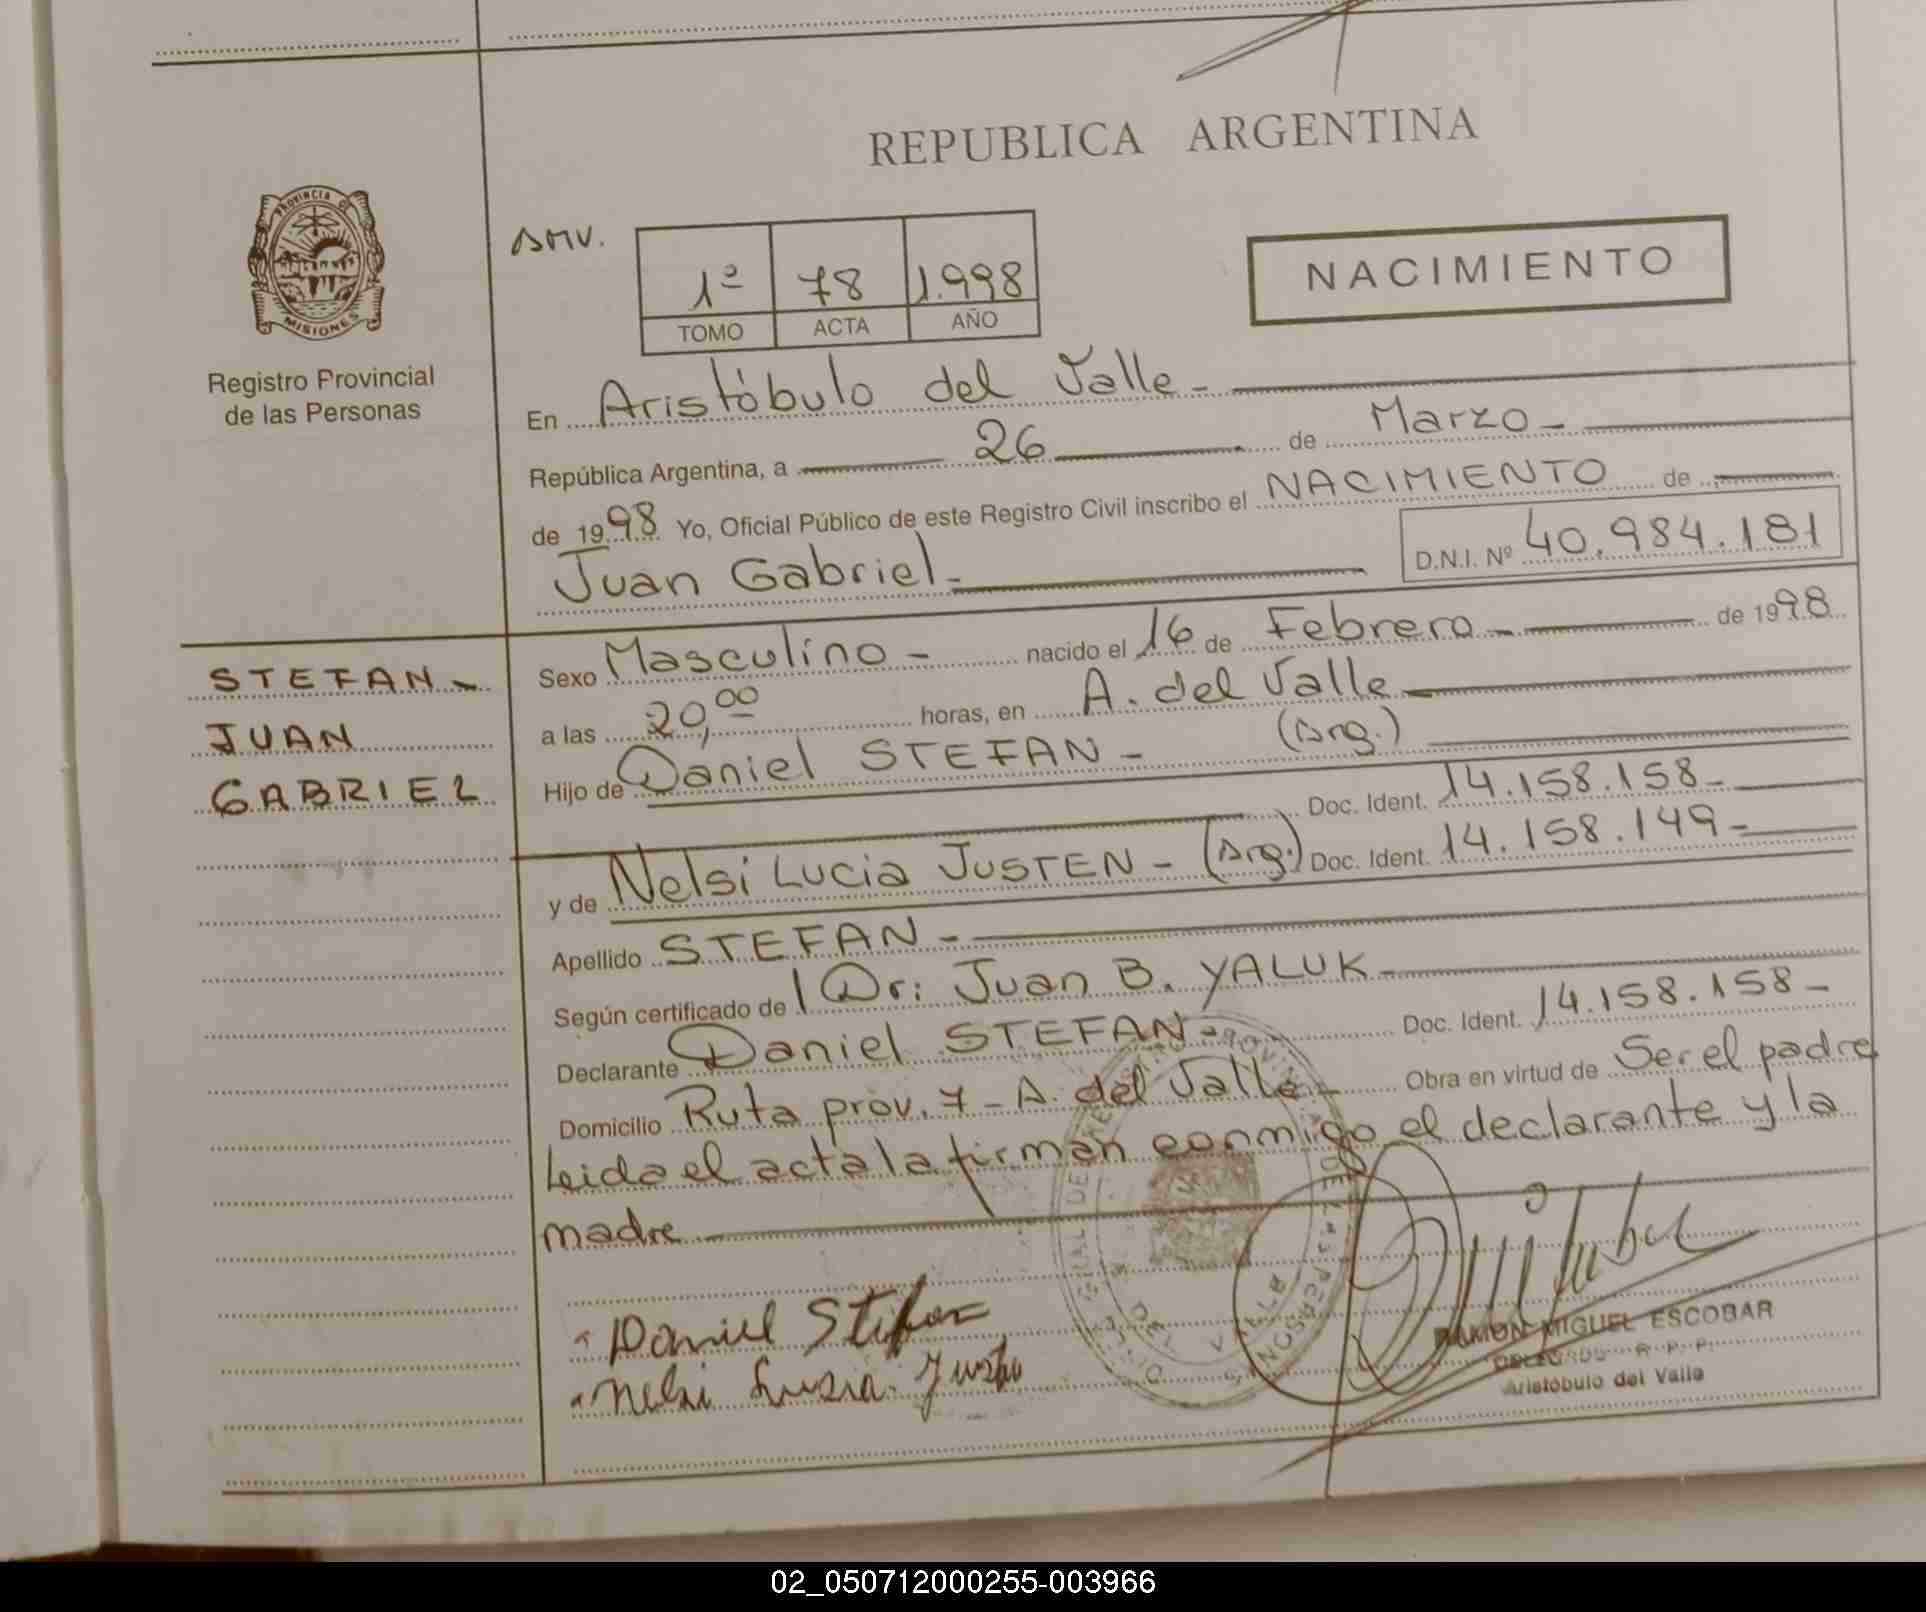 REPUBLICA ARGENTINA
PROVINCIA DE
MISIONES
Registro Provincial
de las Personas
AMV.
1º 78 1.998
TOMO ACTA AÑO
NACIMIENTO
En Aristóbulo del Valle -
República Argentina, a 26 de Marzo -
de 1998 Yo, Oficial Público de este Registro Civil inscribo el NACIMIENTO de
Juan Gabriel - D.N.I. Nº 40.984.181
STEFAN -
JUAN
GABRIEL
Sexo Masculino - nacido el 16 de Febrero - de 1998
a las 20,00 horas, en A. del Valle
Hijo de Daniel STEFAN - (Arg.)
Doc. Ident. 14.158.158 -
y de Nelsi Lucia JUSTEN - (Arg.) Doc. Ident. 14.158.149 -
Apellido STEFAN -
Según certificado de l Dr: Juan B. YALUK -
Declarante Daniel STEFAN - Doc. Ident. 14.158.158 -
Domicilio Ruta prov. 7 - A. del Valle - Obra en virtud de Ser el padre
Leida el acta la firman conmigo el declarante y la
madre
Daniel Stefan
Nelsi Lusia
RAMON MIGUEL ESCOBAR
DELEGADO R.P.P.
Aristóbulo del Valle
02_050712000255-003966